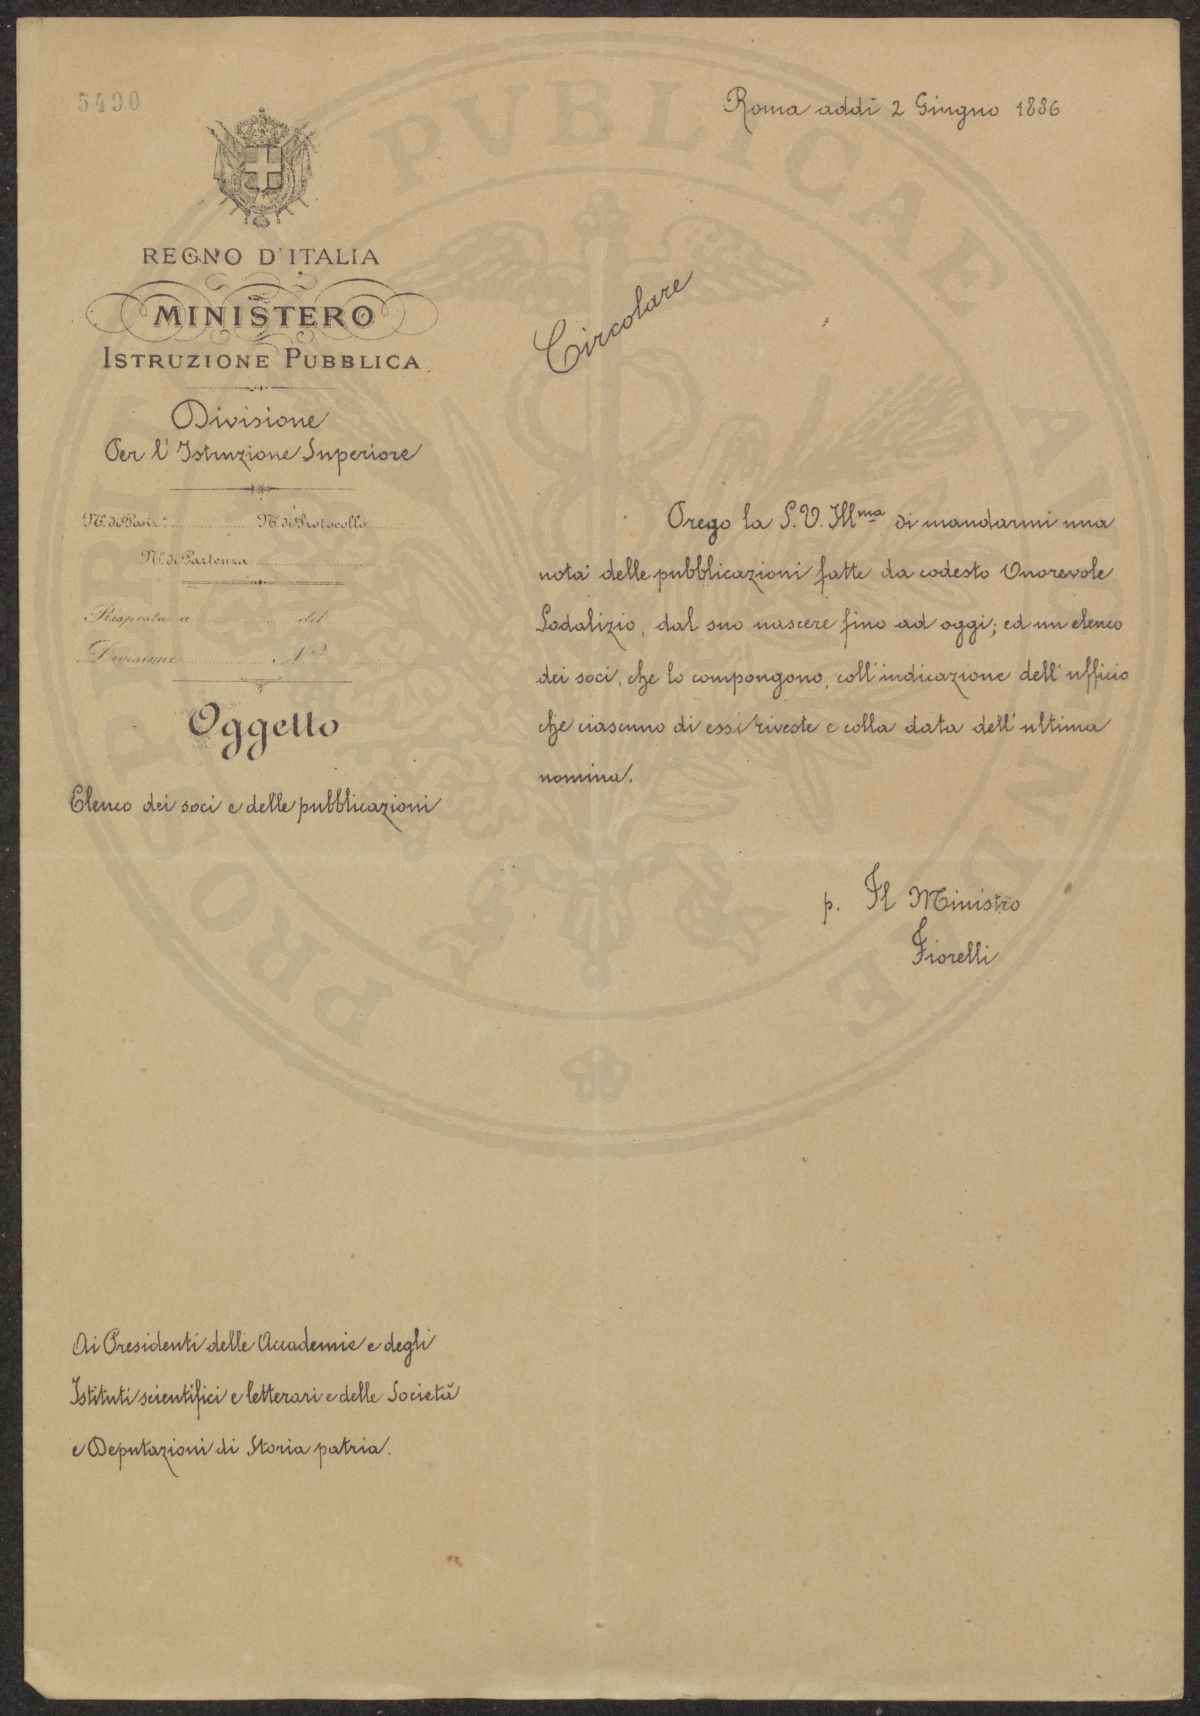 5490
Roma addì 2 Giugno 1886
REGNO D'ITALIA
MINISTERO
ISTRUZIONE PUBBLICA
Circolare
Divisione
Per l'Istruzione Superiore
N.° di Posiz.e N.° di Protocollo
N.° di Partenza
Risposta a del
Divisione N.°
Oggetto
Elenco dei soci e delle pubblicazioni
Prego la S. V. Ill.ma di mandarmi una
nota delle pubblicazioni fatte da codesto Onorevole
Sodalizio, dal suo nascere fino ad oggi; ed un elenco
dei soci, che lo compongono, coll'indicazione dell'ufficio
che ciascuno di essi riveste e colla data dell'ultima
nomina.
p. Il Ministro
Fiorelli
Ai Presidenti delle Accademie e degli
Istituti scientifici e letterari e delle Società
e Deputazioni di Storia patria.